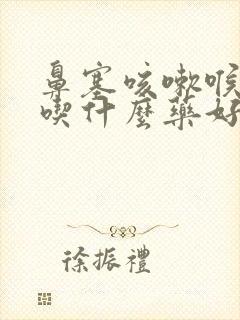 鼻塞咳嗽喉
喫什麼藥好
徐振禮